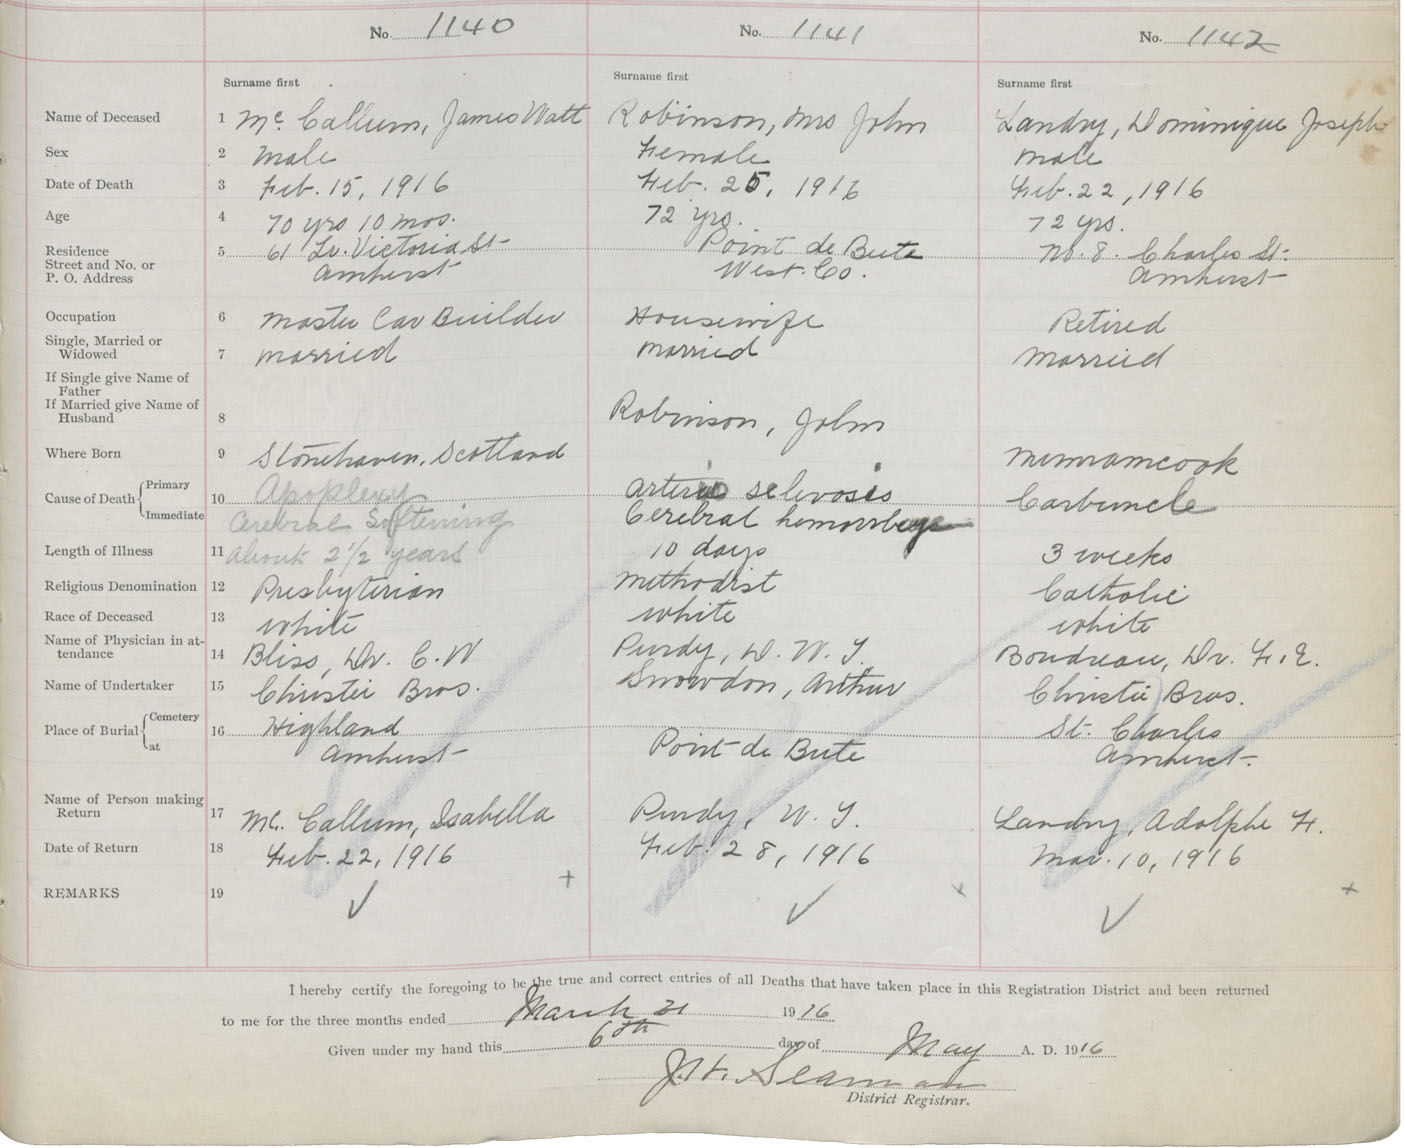 No. 1140 No. 1141 No. 1142
Surname first Surname first Surname first
Name of Deceased 1 Mc Callum, James Watt Robinson, Mrs John Landry, Dominique Joseph
Sex 2 Male Female Male
Date of Death 3 Feb. 15, 1916 Feb. 25, 1916 Feb. 22, 1916
Age 4 70 yrs 10 mos. 72 yrs. 72 yrs.
Residence 5 61 Lr. Victoria St Point de Bute No. 8. Charles St.
Street and No. or Amherst West. Co. Amherst
P. O. Address
Occupation 6 Master Car Builder Housewife Retired
Single, Married or
Widowed 7 Married Married Married
If Single give Name of
Father
If Married give Name of
Husband 8 Robinson, John
Where Born 9 Stonehaven, Scotland Memramcook
Cause of Death Primary 10 Apoplexy Arterio Sclerosis Carbuncle
Immediate Cerebral Softening Cerebral hemorrhage
Length of Illness 11 About 2 1/2 years 10 days 3 weeks
Religious Denomination 12 Presbyterian Methodist Catholic
Race of Deceased 13 White White White
Name of Physician in at-
tendance 14 Bliss, Dr. C. W Purdy, D. W. T. Boudreau, Dr. F. E.
Name of Undertaker 15 Christie Bros. Snowdon, Arthur Christie Bros.
Place of Burial Cemetery 16 Highland St. Charles
at Amherst Point de Bute Amherst.
Name of Person making
Return 17 Mc. Callum, Isabella Purdy, W. T. Landry, Adolphe F.
Date of Return 18 Feb. 22, 1916 Feb. 28, 1916 Mar. 10, 1916
REMARKS 19
I hereby certify the foregoing to be the true and correct entries of all Deaths that have taken place in this Registration District and been returned
to me for the three months ended March 31 1916
Given under my hand this 6th day of May A. D. 1916
J. H. Seaman
District Registrar.